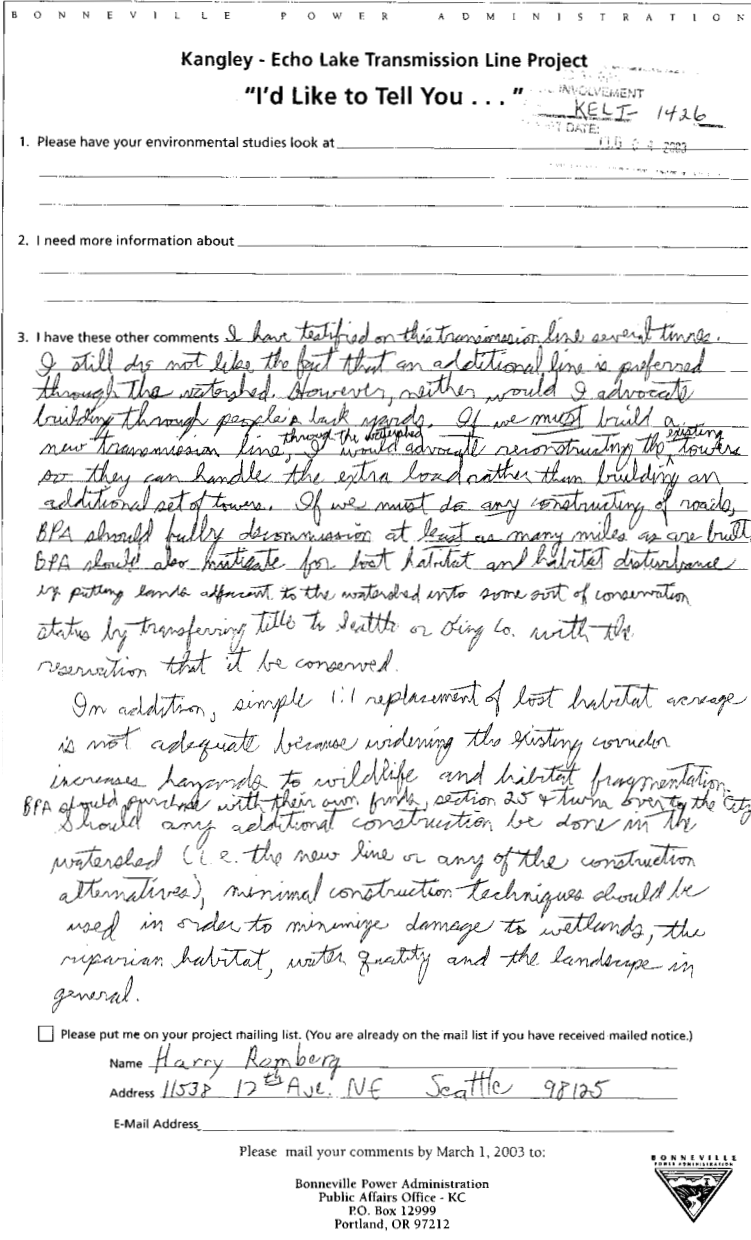 BONNEVILLE POWER ADMINISTRATION
Kangley - Echo Lake Transmission Line Project
"I'd Like to Tell You . . . "
INVOLVEMENT
KELT- 1426
DATE:
2003
1. Please have your environmental studies look at
2. I need more information about
3. I have these other comments I have testified on this transmission line several times.
I still do not like the fact that an additional line is preferred
through the watershed. However, neither would I advocate
building through people's back yards. If we must build a
new transmission line, through the watershed I would advocate reconstructing the existing towers
so they can handle the extra load rather than building an
additional set of towers. If we must do any constructing of roads,
BPA should fully decommission at least as many miles as are built.
BPA should also mitigate for lost habitat and habitat disturbance
by putting lands adjacent to the watershed into some sort of conservation
status by transferring title to Seattle or King Co. with the
reservation that it be conserved.
In addition, simple 1:1 replacement of lost habitat acreage
is not adequate because widening the existing corridor
increases hazards to wildlife and habitat fragmentation.
BPA should purchase with their own funds, section 25 & turn over to the City
Should any additional construction be done in the
watershed (i.e. the new line or any of the construction
alternatives), minimal construction techniques should be
used in order to minimize damage to wetlands, the
riparian habitat, water quality and the landscape in
general.
Please put me on your project mailing list. (You are already on the mail list if you have received mailed notice.)
Name Harry Romberg
Address 11538 12th Ave. NE Seattle 98125
E-Mail Address
Please mail your comments by March 1, 2003 to:
Bonneville Power Administration
Public Affairs Office - KC
P.O. Box 12999
Portland, OR 97212
BONNEVILLE
POWER ADMINISTRATION